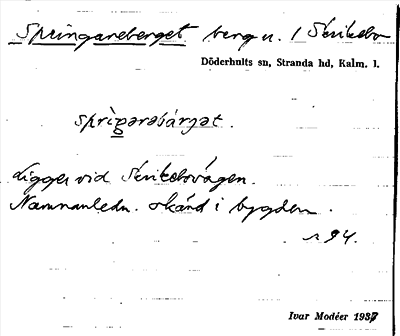 Springareberget berg n. / Skrikebo
Döderhults sn, Stranda hd, Kalm. l.
spriŋarəbárjət.
Ligger vid Skrikebovägen.
Namnanledn. okänd i bygden.
s. 94.
Ivar Modéer 1937